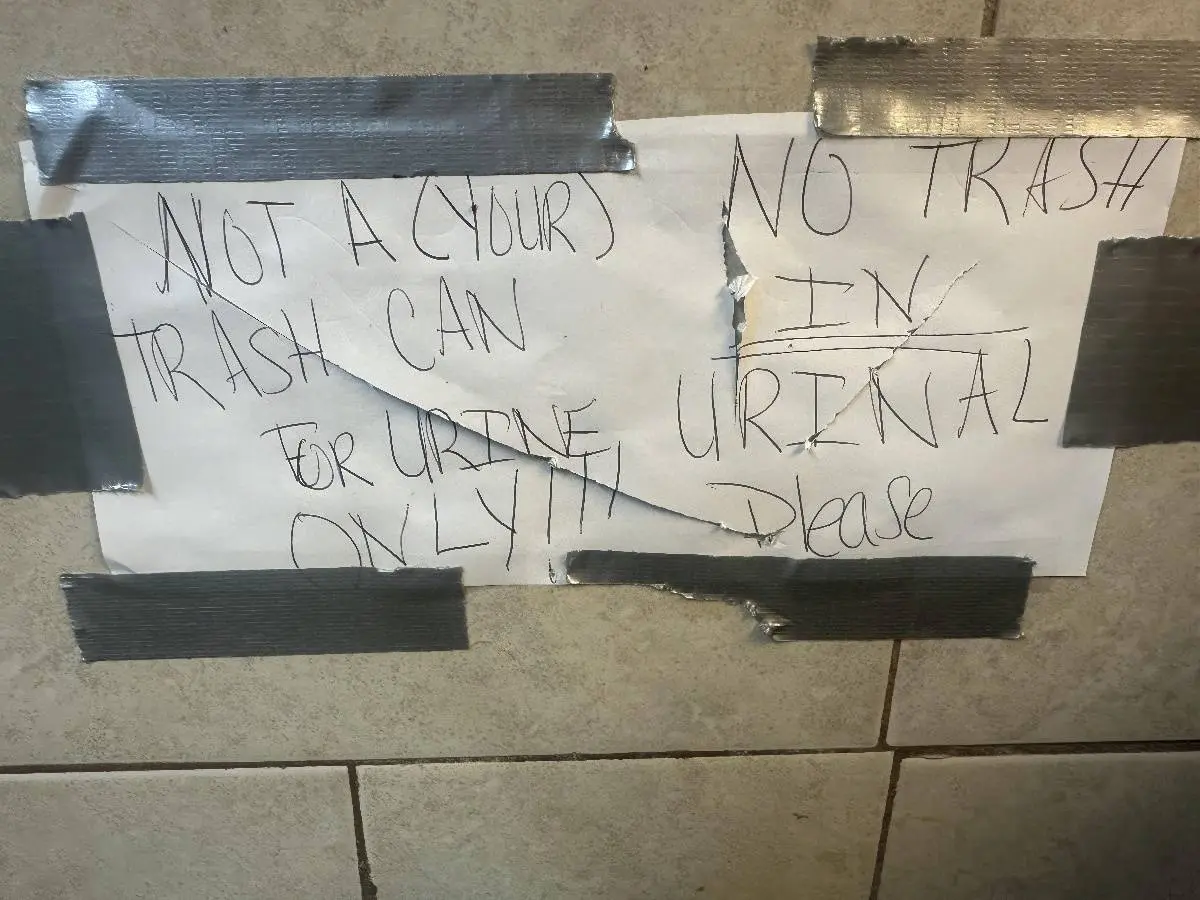 NOT A (YOUR)
TRASH CAN
FOR URINE
ONLY!!!!
NO TRASH
IN
URINAL
Please